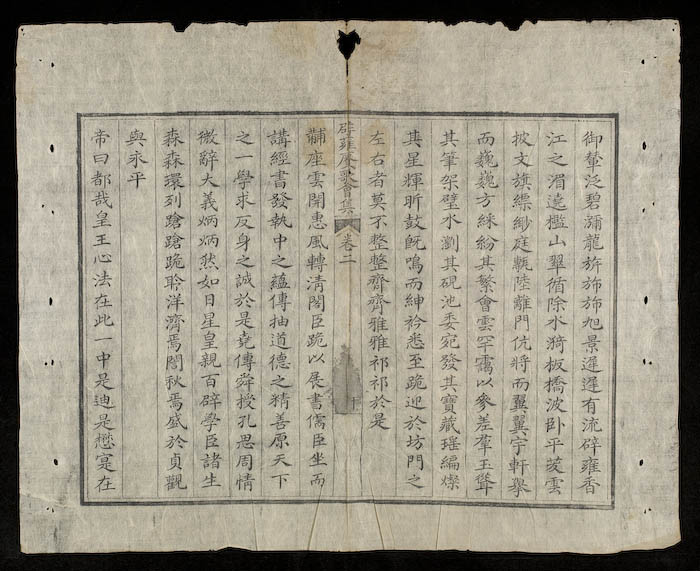 御輦泛碧瀰龍旂斾斾旭景遲遲有流辟雍香
江之湄遠檻山翠循除水漪板橋波卧平菱雲
披文旗縹緲庭甎陸離門伉將而翼翼宇軒舉
而巍巍方綵紛其繁會雲罕靄以參差羣玉聳
其筆架璧水瀏其硯池委宛發其寶藏瑤編燦
其星輝昕鼓旣鳴而紳衿悉至跪迎於坊門之
左右者莫不整整齊齊雅雅祁祁於是
辟雍賡歌會集 卷二 十
黼座雲開惠風轉淸閣臣跪以展書儒臣坐而
講經書發執中之蘊傳抽道德之精善原天下
之一學求反身之誠於是堯傳舜授孔思周情
微辭大義炳炳然如日星皇親百辟學臣諸生
森森環列蹌蹌跪聆洋濟焉誾秋焉盛於貞觀
與永平
帝曰都哉皇王心法在此一中是迪是懋寔在